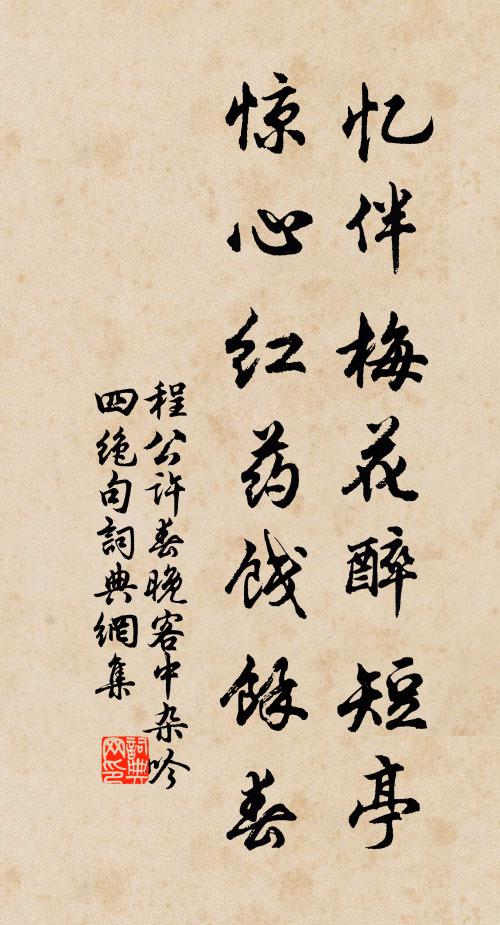 忆伴梅花醉短亭
惊心红药饯馀春
程公许春晚客中杂吟
四绝句詞典網集
詞典网印